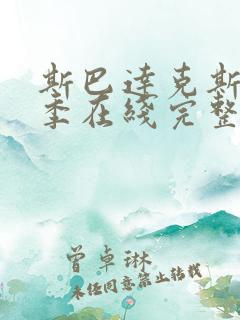 斯巴达克斯
季在线完整
曾卓琳
未经同意禁止转载